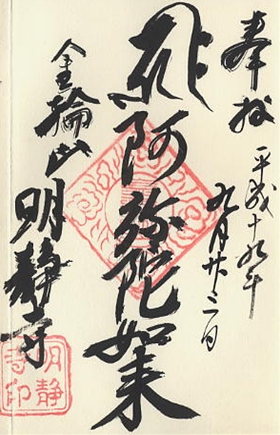 奉拝
平成十九年
九月廿三日
阿弥陀如来
金輪山
明静寺
明静
寺印